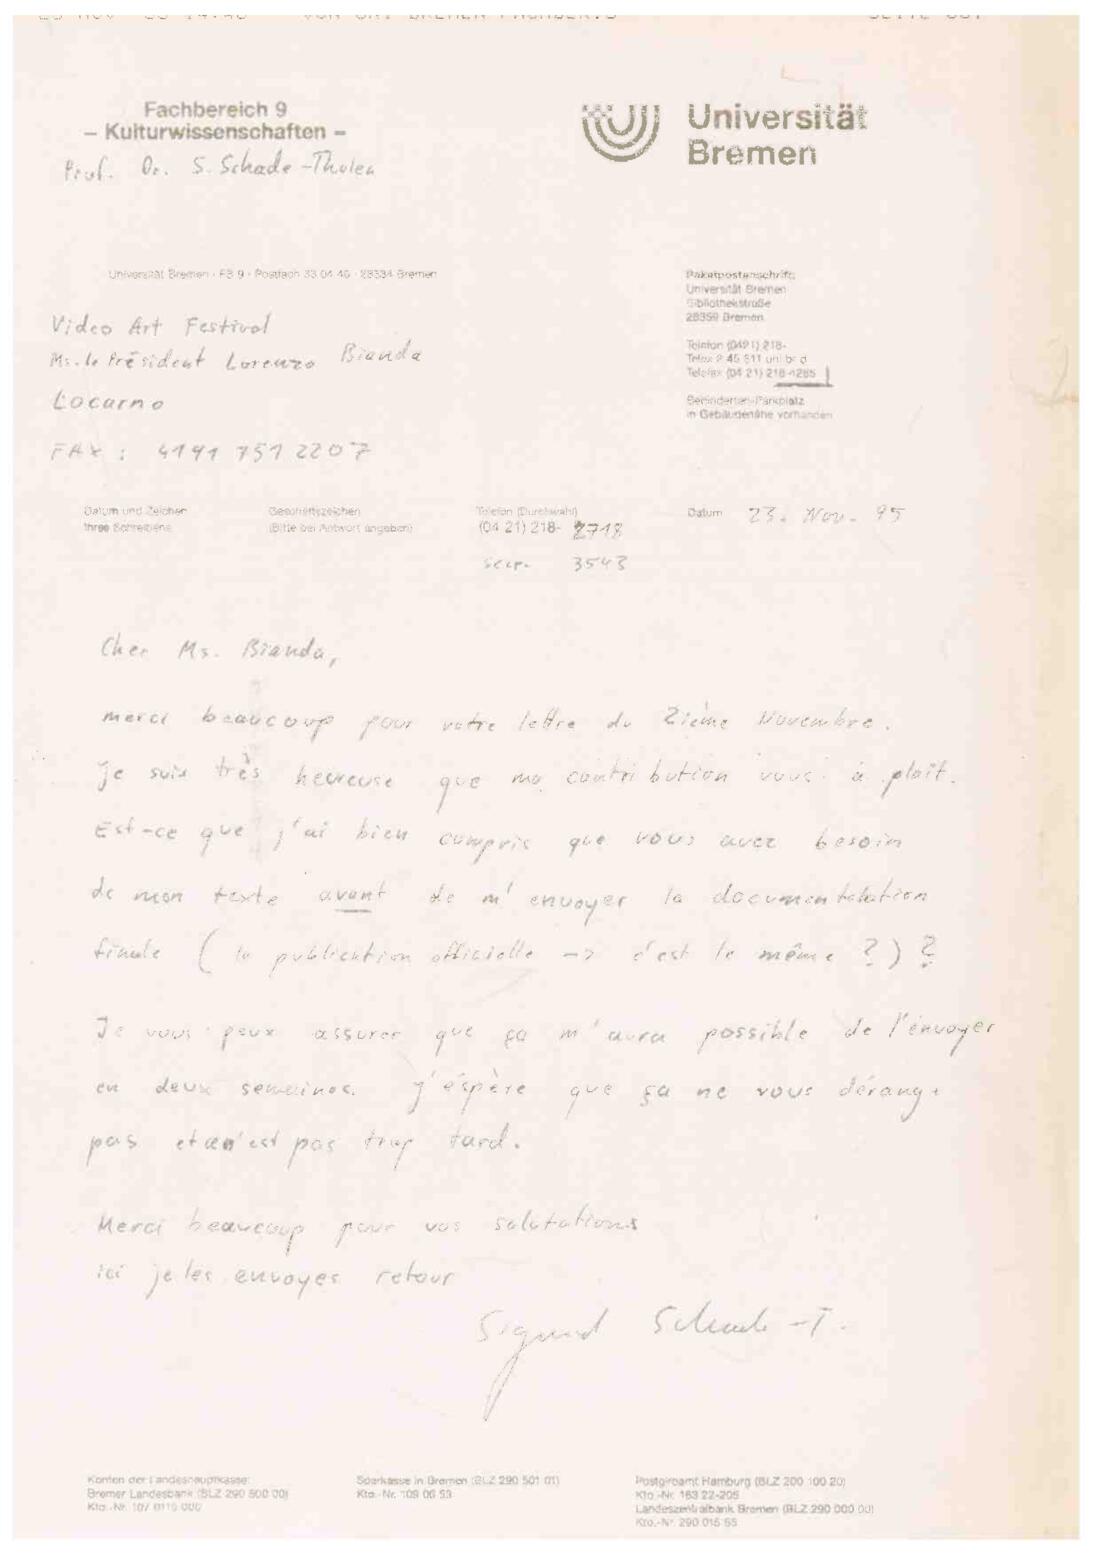 Fachbereich 9
– Kulturwissenschaften –
Prof. Dr. S. Schade-Tholen
Universität
Bremen
Universität Bremen · FB 9 · Postfach 33 04 40 · 28334 Bremen
Paketpostanschrift:
Universität Bremen
Bibliothekstraße
28359 Bremen
Telefon (0421) 218-
Telex 2 45 811 uni br d
Telefax (04 21) 218-4265
Behinderten-Parkplatz
in Gebäudenähe vorhanden
Video Art Festival
Ms. le Président Lorenzo Bianda
Locarno
FAX : 4191 751 2207
Datum und Zeichen
Ihres Schreibens
Geschäftszeichen
(Bitte bei Antwort angeben)
Telefon (Durchwahl)
(04 21) 218- 2718
secr. 3543
Datum 23. Nov. 95
Cher Ms. Bianda,
merci beaucoup pour votre lettre du 2ième Novembre.
je suis très heureuse que ma contribution vous à plaît.
Est-ce que j'ai bien compris que vous avez besoin
de mon texte avant de m'envoyer la documentatation
finale ( la publication officielle -> c'est le même ? ) ?
Je vous peux assurer que ça m'aura possible de l'énvoyer
en deux semaines. j'éspère que ça ne vous dérange
pas et n'est pas trop tard.
Merci beaucoup pour vos salutations
ici je les envoyes retour
Sigrid Schade-T.
Konten der Landeshauptkasse:
Bremer Landesbank (BLZ 290 500 00)
Kto.-Nr. 107 0115 000
Sparkasse in Bremen (BLZ 290 501 01)
Kto.-Nr. 109 06 53
Postgiroamt Hamburg (BLZ 200 100 20)
Kto.-Nr. 163 22-205
Landeszentralbank Bremen (BLZ 290 000 00)
Kto.-Nr. 290 015 65